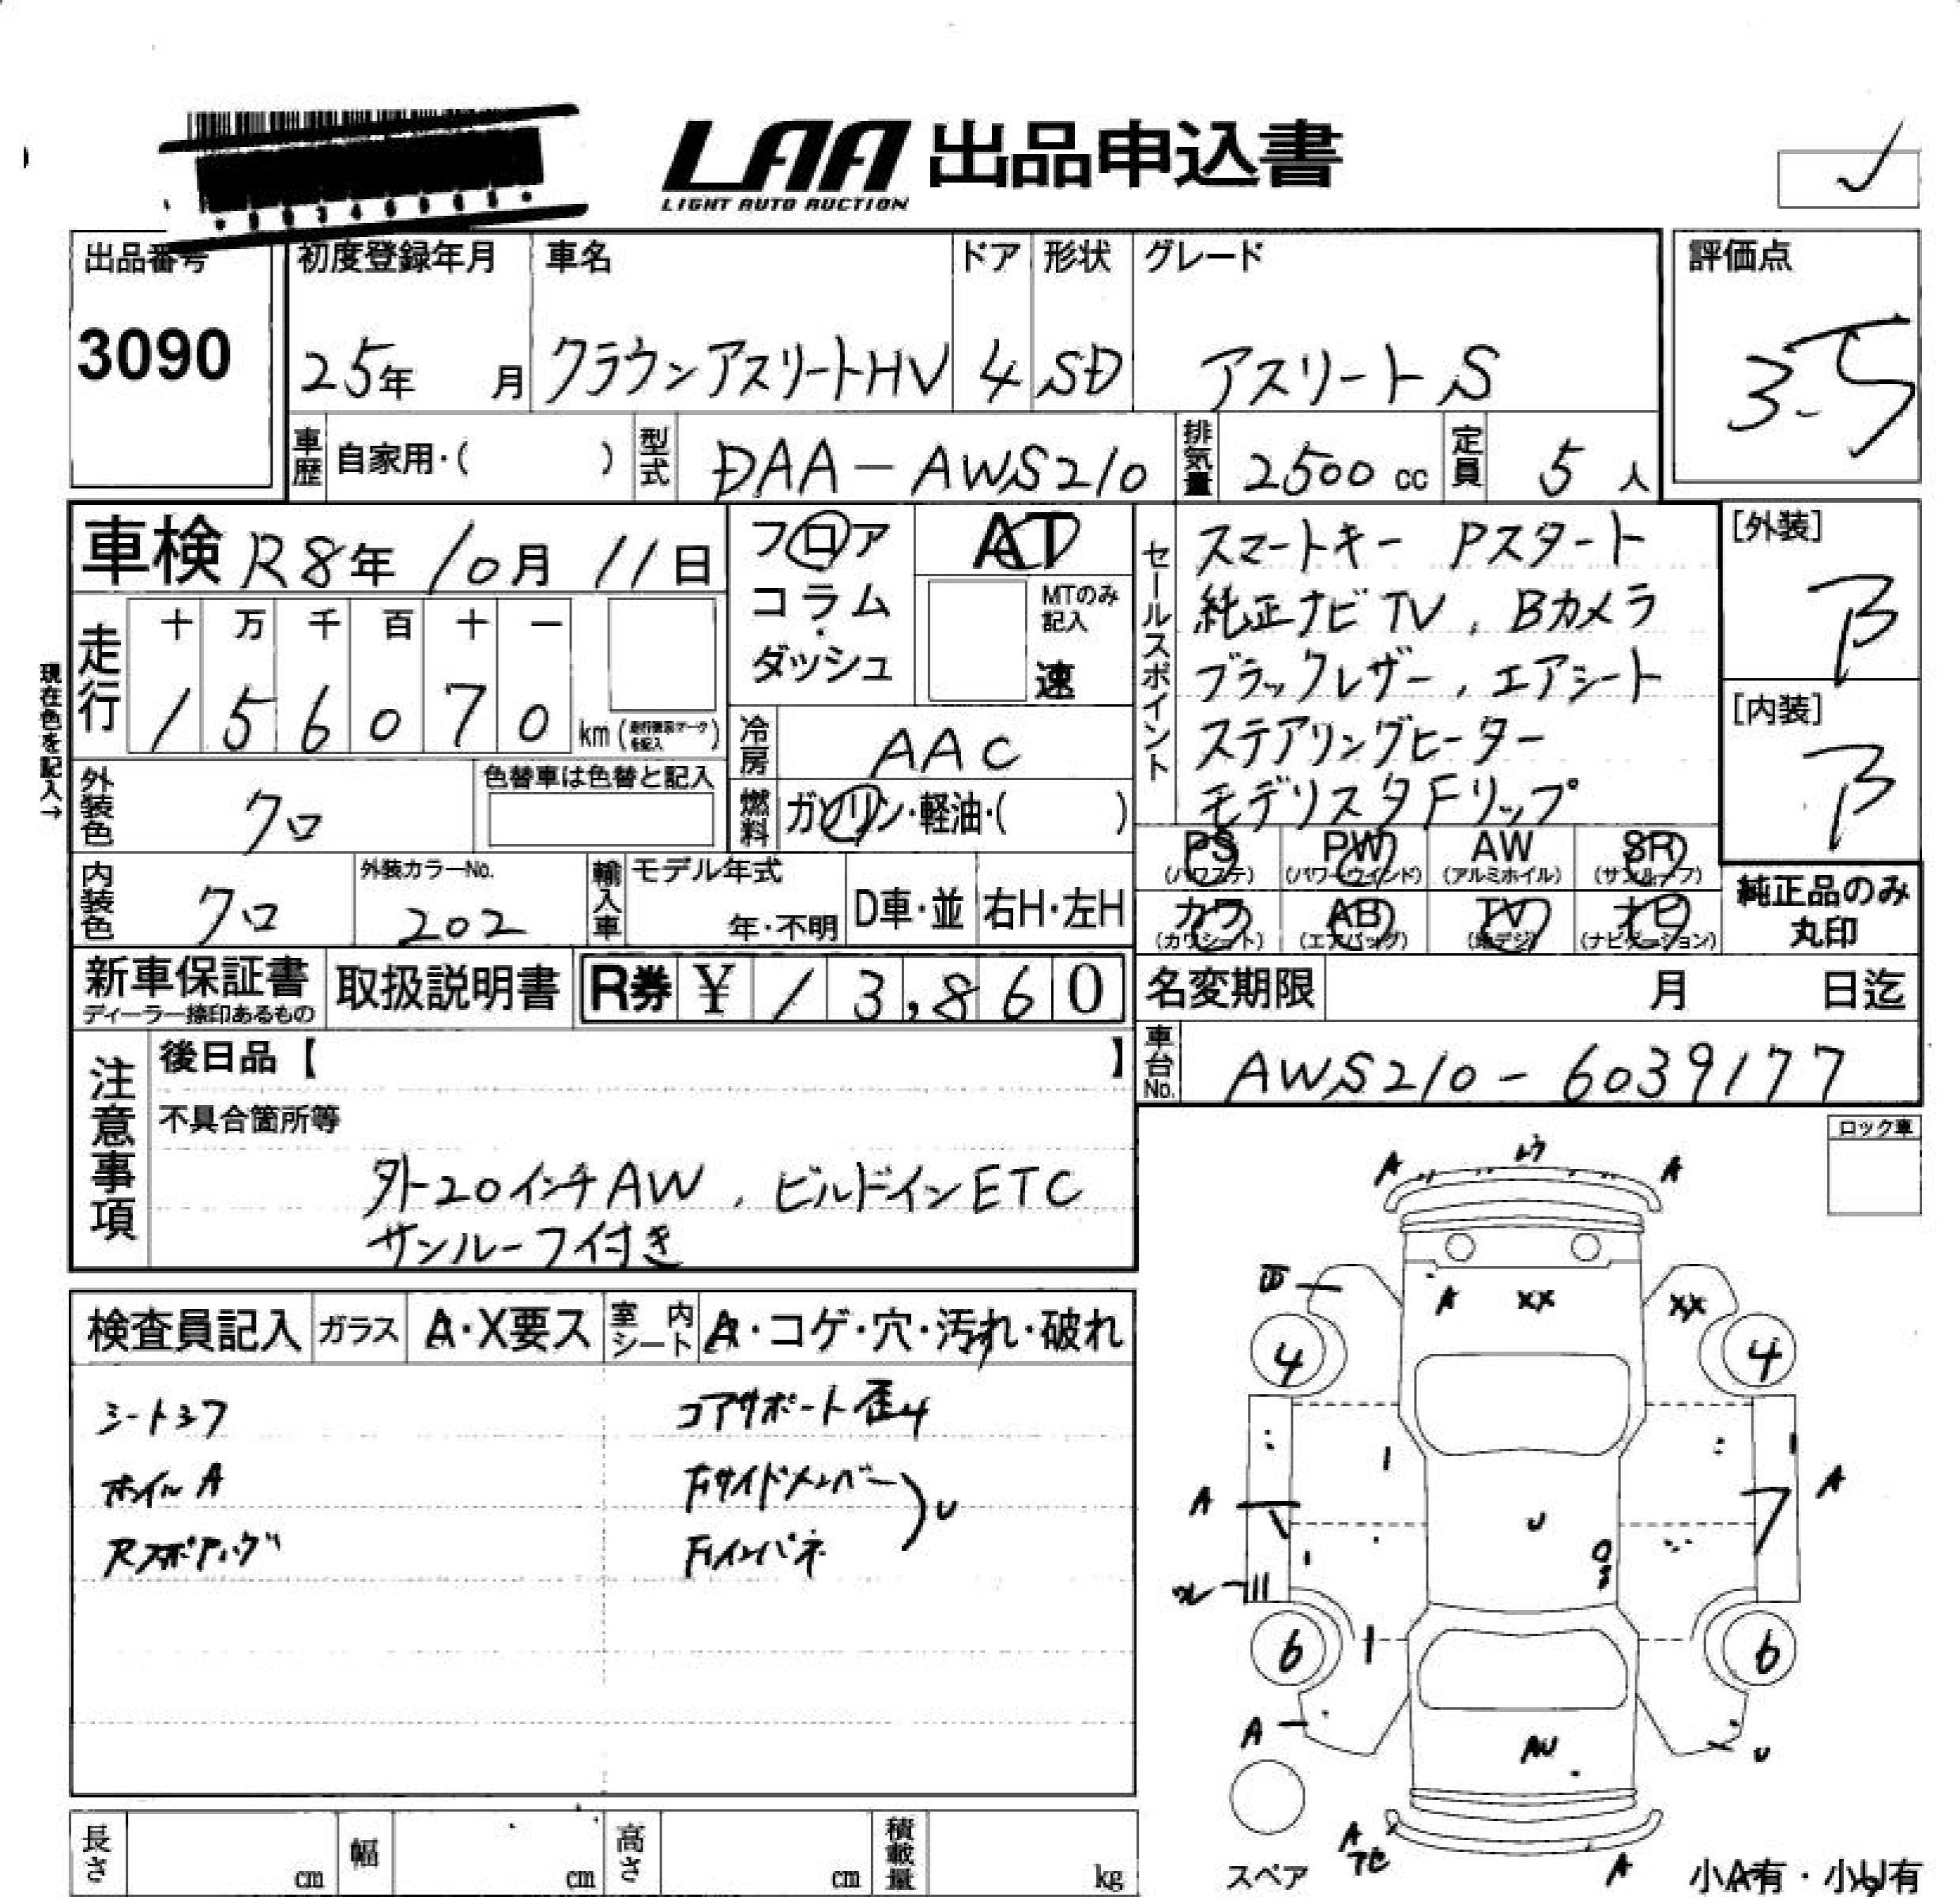 LAA 出品申込書
LIGHT AUTO AUCTION
出品番号 初度登録年月 車名 ドア 形状 グレード 評価点
3090 25年 月 クラウンアスリートHV 4 SD アスリートS 3.5
車歴 自家用・( ) 型式 DAA-AWS210 排気量 2500cc 定員 5人
車検 R8年 10月 11日
フロア コラム・ダッシュ
AT
MTのみ記入 速
現在色を記入→
走行 十 万 千 百 十 一
1 5 6 0 7 0 km
冷房 AAC
外装色 クロ 色替車は色替と記入
燃料 ガソリン・軽油・( )
セールスポイント
スマートキー Pスタート
純正ナビTV、Bカメラ
ブラックレザー、エアシート
ステアリングヒーター
モデリスタFリップ
[外装] B
[内装] B
PS (パワステ) PW (パワーウインド) AW (アルミホイル) SR (サンルーフ)
カワ (カワシート) AB (エアバッグ) TV (地デジ) ナビ (ナビゲーション)
純正品のみ丸印
内装色 クロ 外装カラーNo. 202 輸入車 モデル年式 年・不明 D車・並 右H・左H
新車保証書 ディーラー捺印あるもの 取扱説明書 R券 ¥ 13,860
名変期限 月 日迄
車台No. AWS210-6039177
注意事項
後日品【 】
不具合箇所等
外20インチAW、ビルドインETC
サンルーフ付き
ロック車
検査員記入 ガラス A・X要ス 室内シート A・コゲ・穴・汚れ・破れ
シートシワ コアサポート歪み
ホイルA Fサイドメンバー
Fインパネ U
A A
A XX XX
4 4
A A
U
6 6
A U
AU
A
A
スペア
小A有・小U有
長さ cm 幅 cm 高さ cm 積載量 kg